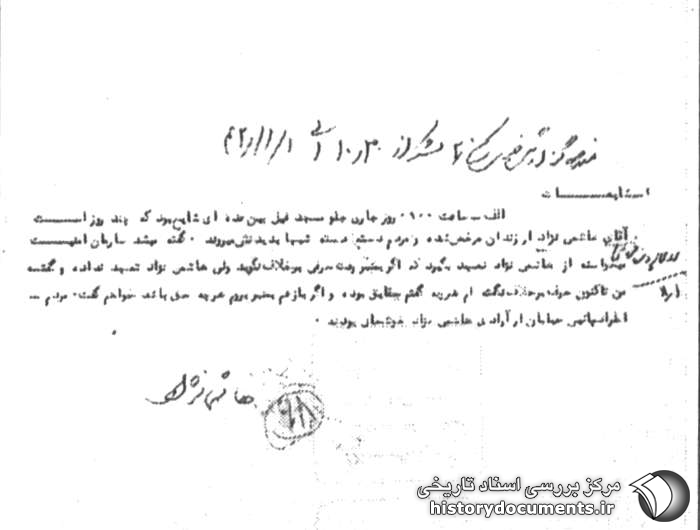 استماعات
الف - ساعت ۰۱۰۰ روز جاری جلو مسجد فیل بین عده ای شایع بود که چند روز است
آقای هاشمی نژاد از زندان مرخص شده و مردم دسته دسته شبها بدیدنش میروند . گفته میشد سازمان امنیت
میخواسته از هاشمی نژاد تعهد بگیرد که اگر بمنبر رفت حرفی برخلاف نگوید ولی هاشمی نژاد تعهد نداده و گفته
من تاکنون حرف برخلاف نگفته ام هرچه گفتم حقایق بوده و اگر باز هم بمنبر بروم هرچه حق باشد خواهم گفت . مردم -
اطراف خیابان از آزادی هاشمی نژاد خوشحال بودند .
هاشمی نژاد
مرکز بررسی اسناد تاریخی
historydocuments.ir